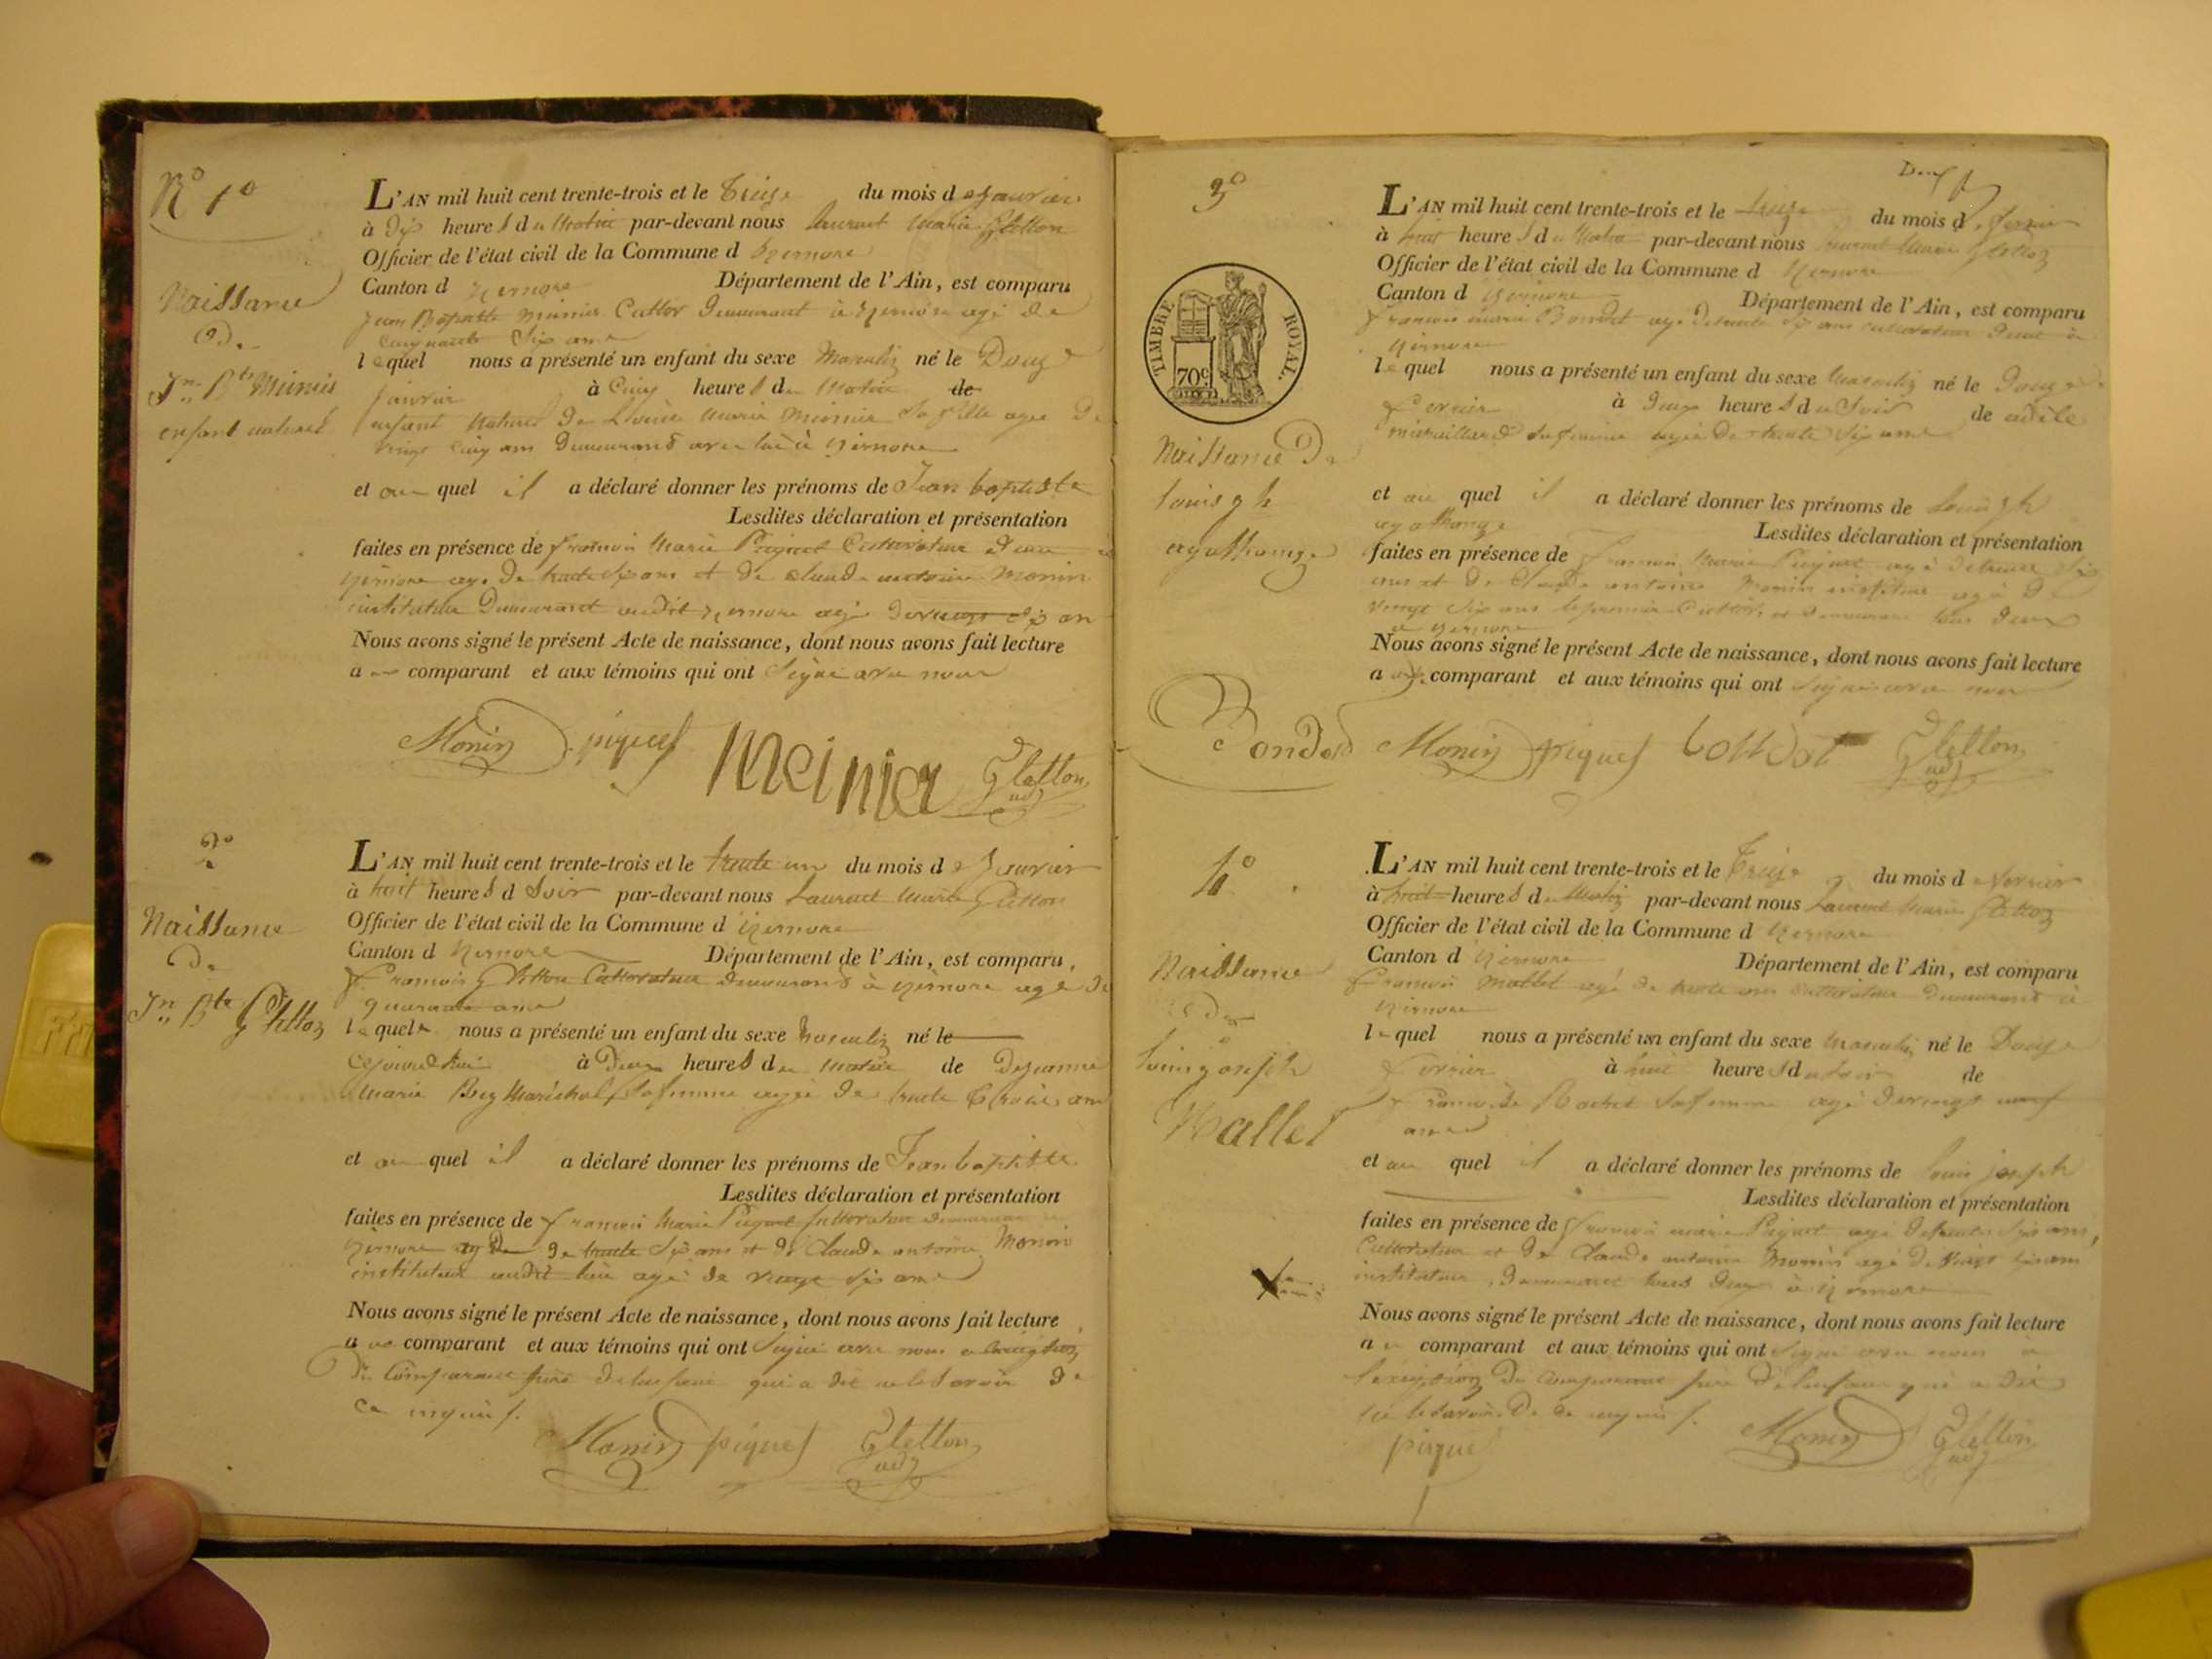 N° 1°
Naissance
De
Jn Bte Miniés
enfant naturel
L'AN mil huit cent trente-trois et le treize du mois de janvier
à dix heures du Matin par-devant nous Laurent Marie Gletton
Officier de l'état civil de la Commune d izernore
Canton d izernore Département de l'Ain, est comparu
Jean Baptiste Cultor Demeurant à izernore agé de
cinquante Six ans
lequel nous a présenté un enfant du sexe Masculin né le Douze
janvier à Cinq heures du Matin de
enfant Naturel De Marie sa fille agée De
vingt cinq ans Demeurant avec lui à izernore
et au quel il a déclaré donner les prénoms de Jean baptiste
Lesdites déclaration et présentation
faites en présence de francois Marie Piquet Cultivateur à
izernore agé De trente Six ans et De Claude antoine Monin
instituteur Demeurant audit izernore agé De vingt Six ans
Nous avons signé le présent Acte de naissance, dont nous avons fait lecture
a comparant et aux témoins qui ont Signé avec nous
Monin piquet Meinier Gletton
adj
2°
Naissance
De
Jn Bte Gletton
L'AN mil huit cent trente-trois et le trente un du mois de Janvier
à huit heures d Soir par-devant nous Laurent Marie Gletton
Officier de l'état civil de la Commune d izernore
Canton d izernore Département de l'Ain, est comparu
francois Gletton Cultivateur demeurant à izernore agé De
quarante ans
lequel nous a présenté un enfant du sexe Masculin né le
cejourd'hui à Deux heures du matin de Dejeanne
Marie Bey Maréchal sa femme agée De trente trois ans
et au quel il a déclaré donner les prénoms de Jean baptiste
Lesdites déclaration et présentation
faites en présence de francois Marie Piquet Cultivateur demeurant
izernore agé De trente Six ans et De Claude antoine Monin
instituteur audit lieu agé de vingt Six ans
Nous avons signé le présent Acte de naissance, dont nous avons fait lecture
a comparant et aux témoins qui ont Signé avec nous
Du Comparant père De l'enfant qui a dit ne le Savoir De
ce requis.
Monin piquet Gletton
adj
Deux
3°
TIMBRE ROYAL.
70c
Naissance De
louis jh
agathange
Bondet
L'AN mil huit cent trente-trois et le treize du mois de fevrier
à huit heures du Matin par-devant nous Laurent Marie Gletton
Officier de l'état civil de la Commune d izernore
Canton d izernore Département de l'Ain, est comparu
francois marie Bondet agé De trente Six ans cultivateur à
izernore
lequel nous a présenté un enfant du sexe Masculin né le Douze
fevrier à Deux heures du Soir de adèle
sa femme agée De trente Six ans
et au quel il a déclaré donner les prénoms de louis jh
agathange Lesdites déclaration et présentation
faites en présence de francois Marie Piquet agé De trente Six
ans et De Claude antoine Monin instituteur agé De
vingt Six ans le premier Cultivateur Demeurant tous Deux
à izernore
Nous avons signé le présent Acte de naissance, dont nous avons fait lecture
a comparant et aux témoins qui ont Signé avec nous
Monin piquet bondet Gletton
adj
4°
Naissance
De
louis joseph
Mallet
L'AN mil huit cent trente-trois et le treize du mois de fevrier
à huit heures du Matin par-devant nous Laurent Marie Gletton
Officier de l'état civil de la Commune d izernore
Canton d izernore Département de l'Ain, est comparu
francois Mallet agé De trente ans Cultivateur Demeurant à
izernore
lequel nous a présenté un enfant du sexe Masculin né le Douze
fevrier à huit heures du Soir de
francoise Rochet sa femme agé De vingt neuf
ans
et au quel il a déclaré donner les prénoms de louis joseph
Lesdites déclaration et présentation
faites en présence de francois marie Piquet agé De trente Six ans,
Cultivateur et De Claude antoine Monin agé De vingt Six ans
instituteur, Demeurant tous Deux à izernore
Nous avons signé le présent Acte de naissance, dont nous avons fait lecture
a comparant et aux témoins qui ont Signé avec nous à
l'exception Du Comparant père De l'enfant qui a dit
ne le Savoir De ce requis.
piquet Monin Gletton
adj